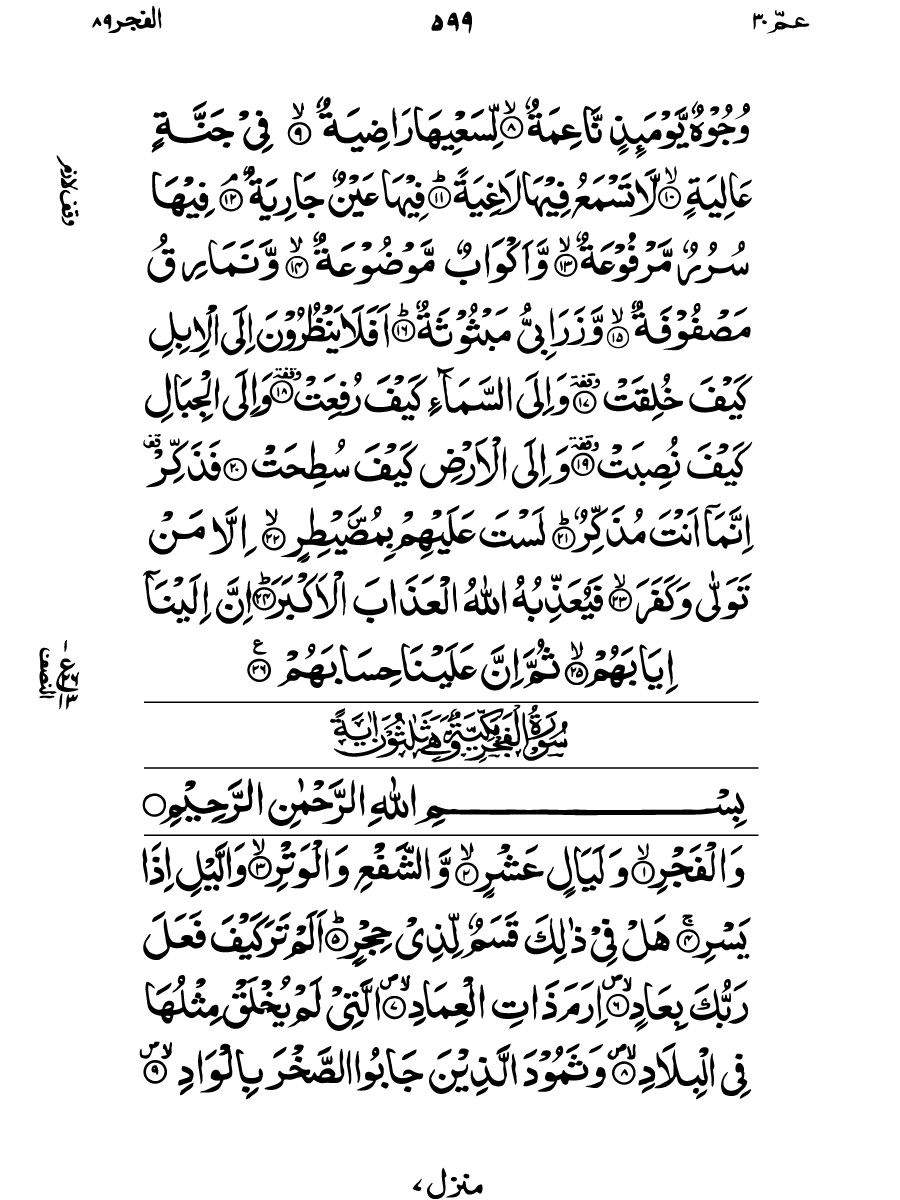 عمّ ۳۰ ۵۹۹ الفجر ۸۹
وُجُوْهٌ يَّوْمَىِٕذٍ نَّاعِمَةٌۙ۝۸ لِّسَعْيِهَا رَاضِيَةٌۙ۝۹ فِيْ جَنَّةٍ
عَالِيَةٍۙ۝۱۰ لَّا تَسْمَعُ فِيْهَا لَاغِيَةًؕ۝۱۱ فِيْهَا عَيْنٌ جَارِيَةٌۘ۝۱۲ فِيْهَا
وقف لازم
سُرُرٌ مَّرْفُوْعَةٌۙ۝۱۳ وَّاَكْوَابٌ مَّوْضُوْعَةٌۙ۝۱۴ وَّنَمَارِقُ
مَصْفُوْفَةٌۙ۝۱۵ وَّزَرَابِيُّ مَبْثُوْثَةٌؕ۝۱۶ اَفَلَا يَنْظُرُوْنَ اِلَى الْاِبِلِ
كَيْفَ خُلِقَتْ وقفة۝۱۷ وَاِلَى السَّمَآءِ كَيْفَ رُفِعَتْ وقفة۝۱۸ وَاِلَى الْجِبَالِ
كَيْفَ نُصِبَتْ وقفة۝۱۹ وَاِلَى الْاَرْضِ كَيْفَ سُطِحَتْ۝۲۰ فَذَكِّرْ قف
اِنَّمَآ اَنْتَ مُذَكِّرٌؕ۝۲۱ لَسْتَ عَلَيْهِمْ بِمُصَۜيْطِرٍۙ۝۲۲ اِلَّا مَنْ
تَوَلّٰى وَكَفَرَۙ۝۲۳ فَيُعَذِّبُهُ اللّٰهُ الْعَذَابَ الْاَكْبَرَؕ۝۲۴ اِنَّ اِلَيْنَآ
اِيَابَهُمْۙ۝۲۵ ثُمَّ اِنَّ عَلَيْنَا حِسَابَهُمْ۝۲۶ ع
النصف
سُوْرَةُ الْفَجْرِ مَكِّيَّةٌ وَّهِيَ ثَلٰثُوْنَ اٰيَةً
بِسْمِ اللّٰهِ الرَّحْمٰنِ الرَّحِيْمِ۝
وَالْفَجْرِۙ۝۱ وَلَيَالٍ عَشْرٍۙ۝۲ وَّالشَّفْعِ وَالْوَتْرِۙ۝۳ وَالَّيْلِ اِذَا
يَسْرِۚ۝۴ هَلْ فِيْ ذٰلِكَ قَسَمٌ لِّذِيْ حِجْرٍؕ۝۵ اَلَمْ تَرَ كَيْفَ فَعَلَ
رَبُّكَ بِعَادٍۙ۝۶ اِرَمَ ذَاتِ الْعِمَادِۙ۝۷ الَّتِيْ لَمْ يُخْلَقْ مِثْلُهَا
فِى الْبِلَادِۙ۝۸ وَثَمُوْدَ الَّذِيْنَ جَابُوا الصَّخْرَ بِالْوَادِۙ۝۹
منزل ۷